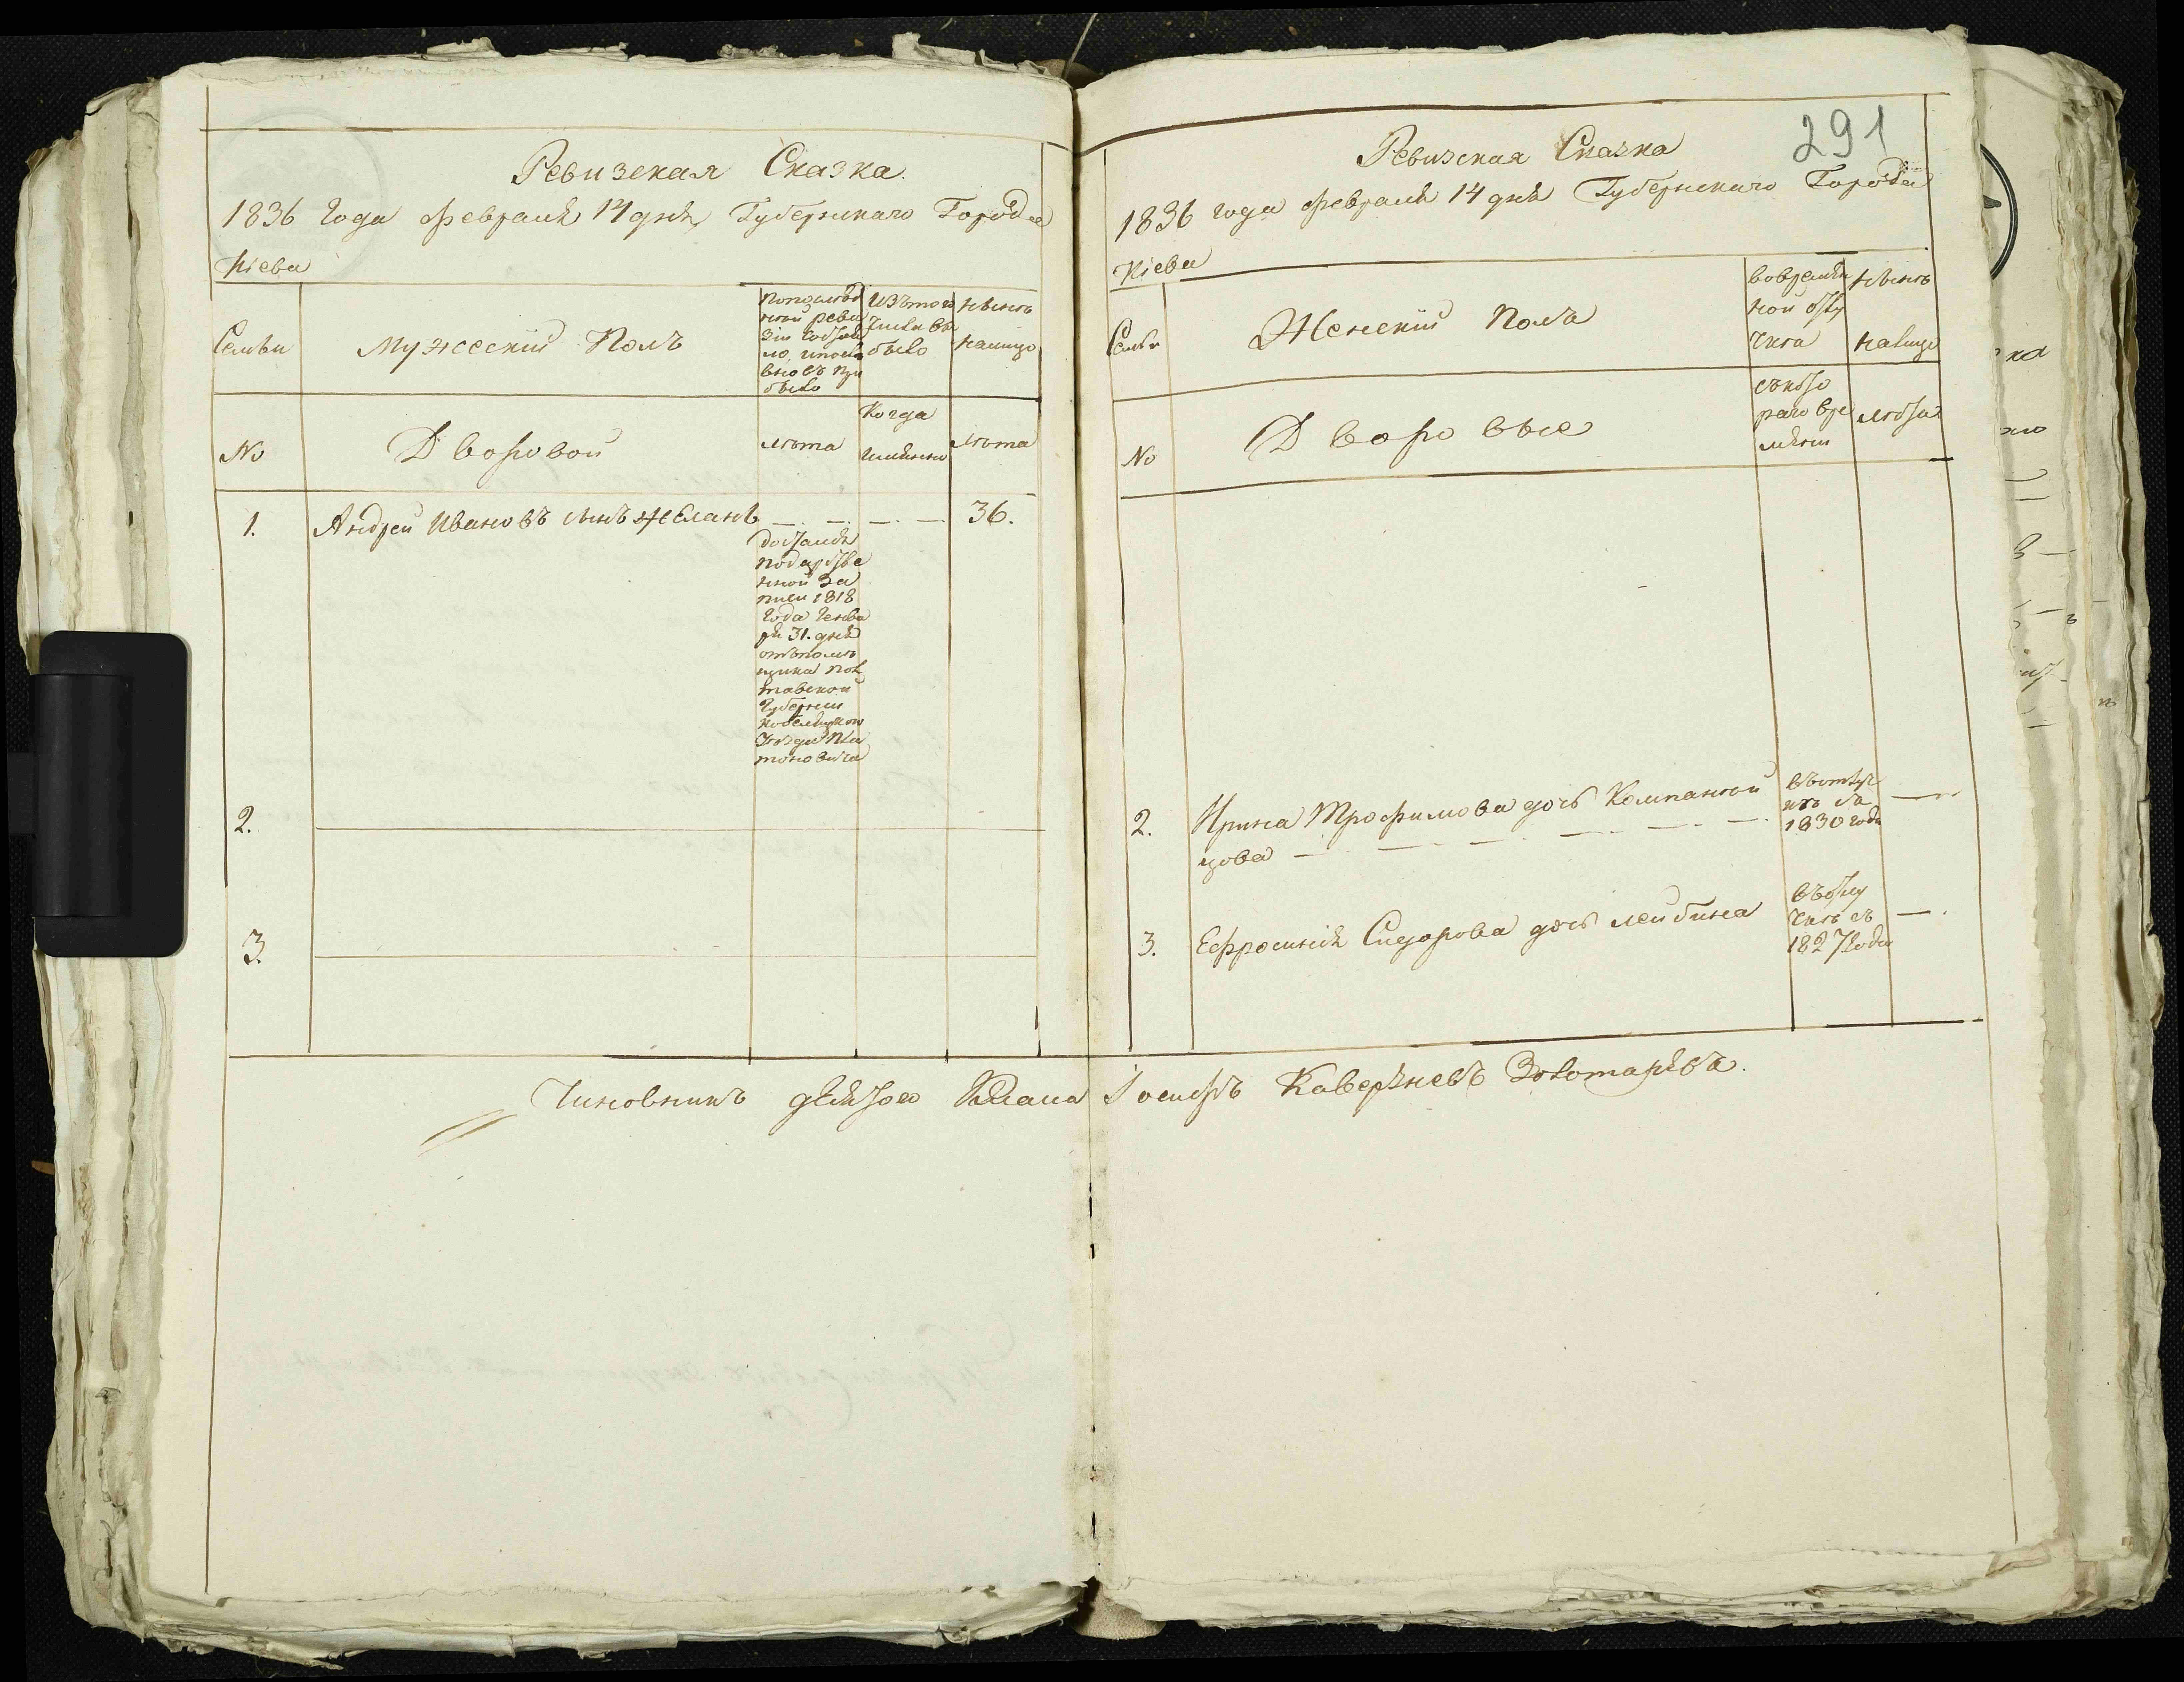 Ревизская Сказка.
1836 года февраля 14 дня Губернскаго Города
Кіева
Семьи
Мужескій Полъ
попослѣд
ной реви
зіи состоя
ло, ипослѣ
вновь при
было
Изътого
числа вы
было
Нынѣ
налицо
No
Дворовой
лѣта
Когда
имянно
лѣта
1. Андрей Ивановъ сынъ Желань — — — — 36.
достался
подарстве
нной за
писи 1818
года Генва
ря 31. дня
отъпомѣ
щика пол
тавской
Губерніи
кобеляцкого
уѣзда Пла
тоновича
2.
3.
291
Ревизская Сказка
1836 года февраля 14 дня Губернскаго Города
Кіева
Семьи
Женскій Полъ
вовремян
ной отлу
чкѣ
Нынѣ
налицо
No
Дворовые
съкото
раго вре
мяни
лѣта
2. Ирина Трофимова дочь Компаной
цова — — — — — —
вътлуч
кѣ съ
1830 года
—
3. Ефросинія Сидорова дочь лейбина
въотлу
чкѣ съ
1827 года
—.
Чиновникъ 9 Класа Іосифъ Каверяневъ Золотарѣвъ.